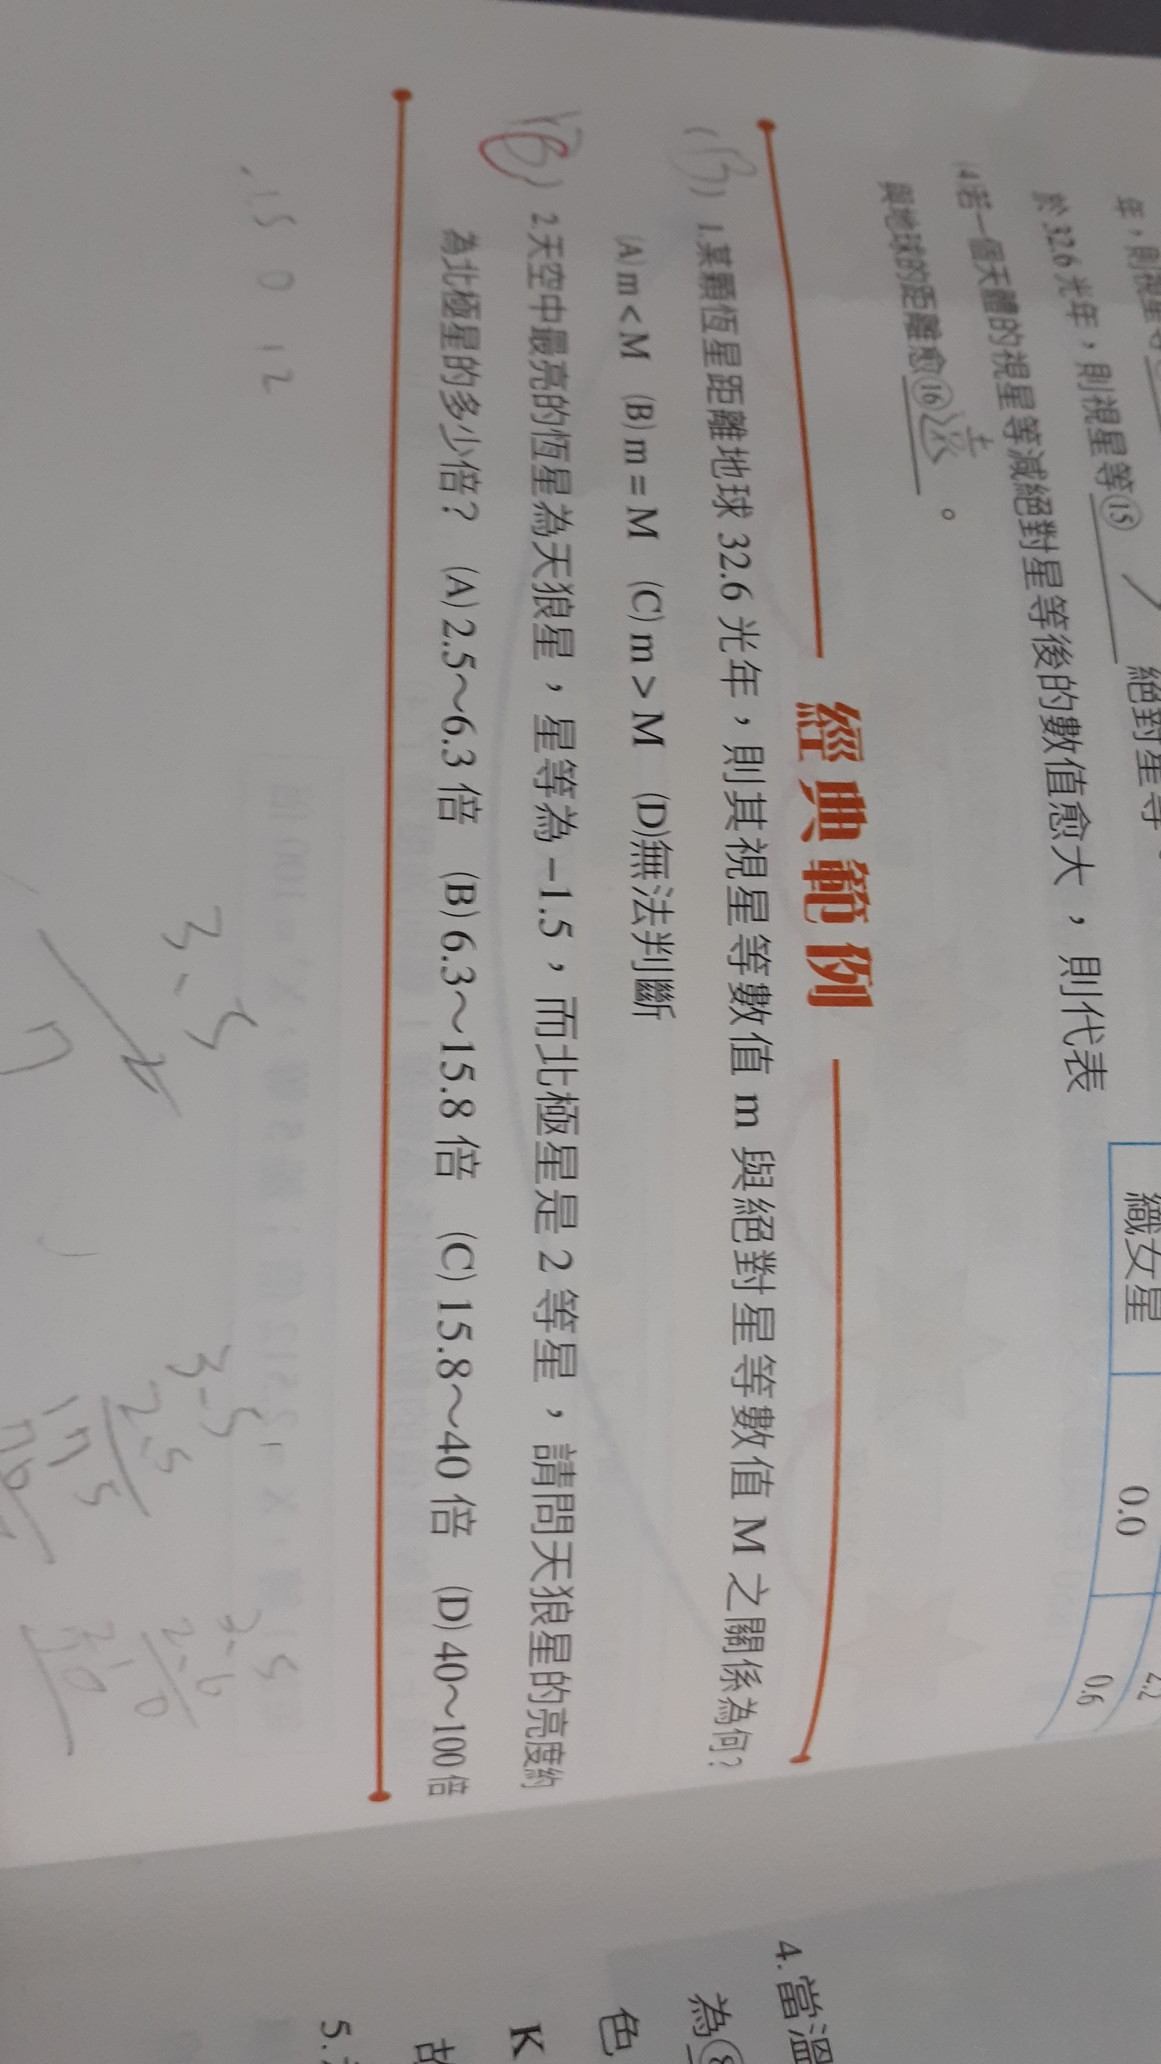 年，則視星等
於 32.6 光年，則視星等⑮
絕對星等。
(4)若一個天體的視星等減絕對星等後的數值愈大，則代表
與地球的距離愈⑯
。
織女星 0.0 0.6
2.2
經典範例
(B) 1.某顆恆星距離地球 32.6 光年，則其視星等數值 m 與絕對星等數值 M 之關係為何？
(A) m < M (B) m = M (C) m > M (D)無法判斷
(B) 2.天空中最亮的恆星為天狼星，星等為 −1.5，而北極星是 2 等星，請問天狼星的亮度約
為北極星的多少倍？ (A) 2.5～6.3 倍 (B) 6.3～15.8 倍 (C) 15.8～40 倍 (D) 40～100 倍
-1.5 0 1 2
3.5
3.5
2.5
175
4.當溫
為⑧
色
K
故
5.